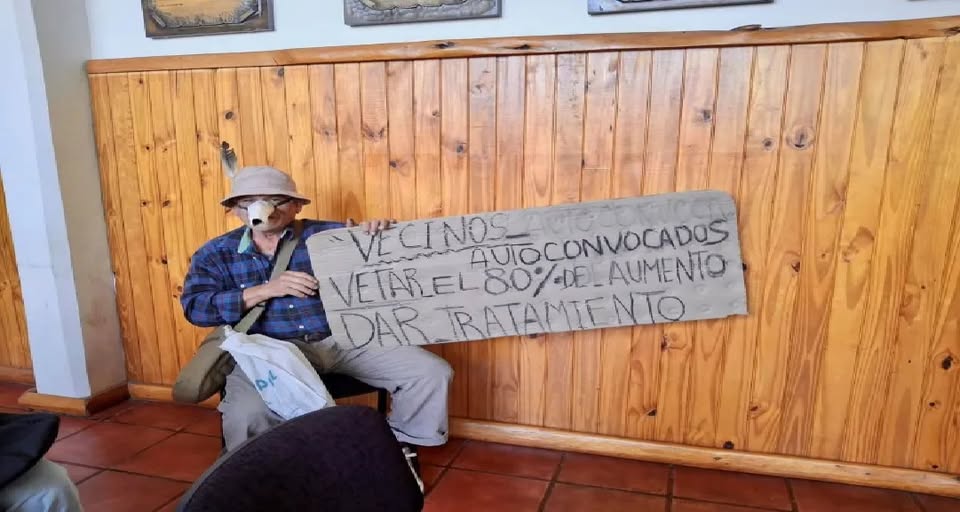 VECINOS
AUTOCONVOCADOS
VETAR EL 80% DEL AUMENTO
DAR TRATAMIENTO